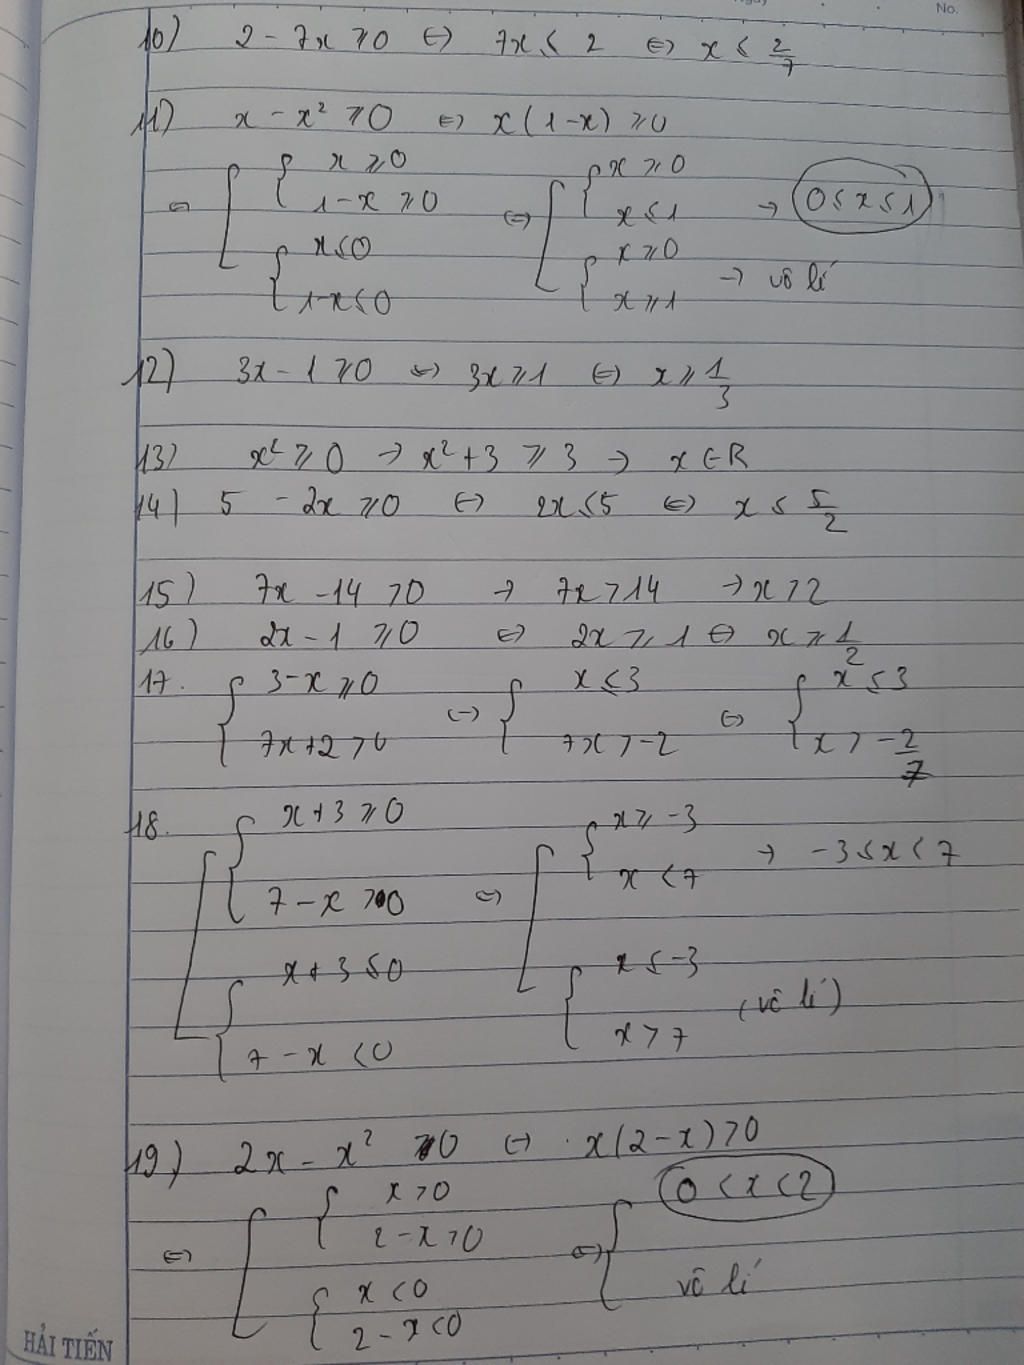 No.
10) 2 - 7x ≥ 0 ⇔ 7x ≤ 2 ⇔ x ≤ 2/7
11) x - x² ≥ 0 ⇔ x(1-x) ≥ 0
⇔ [ { x ≥ 0 ⇔ [ { x ≥ 0
1-x ≥ 0 x ≤ 1 → 0 ≤ x ≤ 1
{ x ≤ 0 { x ≥ 0
1-x ≤ 0 x ≥ 1 → vô lí
12) 3x - 1 ≥ 0 ⇔ 3x ≥ 1 ⇔ x ≥ 1/3
13) x² ≥ 0 → x² + 3 ≥ 3 → x ∈ R
14) 5 - 2x ≥ 0 ⇔ 2x ≤ 5 ⇔ x ≤ 5/2
15) 7x - 14 > 0 → 7x > 14 → x > 2
16) 2x - 1 ≥ 0 ⇔ 2x ≥ 1 ⇔ x ≥ 1/2
17. { 3-x ≥ 0 ⇔ { x ≤ 3 ⇔ { x ≤ 3
7x+2 > 0 7x > -2 x > -2/7
18. [ { x + 3 ≥ 0 ⇔ [ { x ≥ -3
7 - x > 0 x < 7 → -3 ≤ x < 7
{ x + 3 ≤ 0 { x ≤ -3
7 - x < 0 x > 7 (vô lí)
19) 2x - x² > 0 ⇔ x(2-x) > 0
⇔ [ { x > 0 ⇔ [ 0 < x < 2
2-x > 0
{ x < 0 vô lí
2-x < 0
HẢI TIẾN